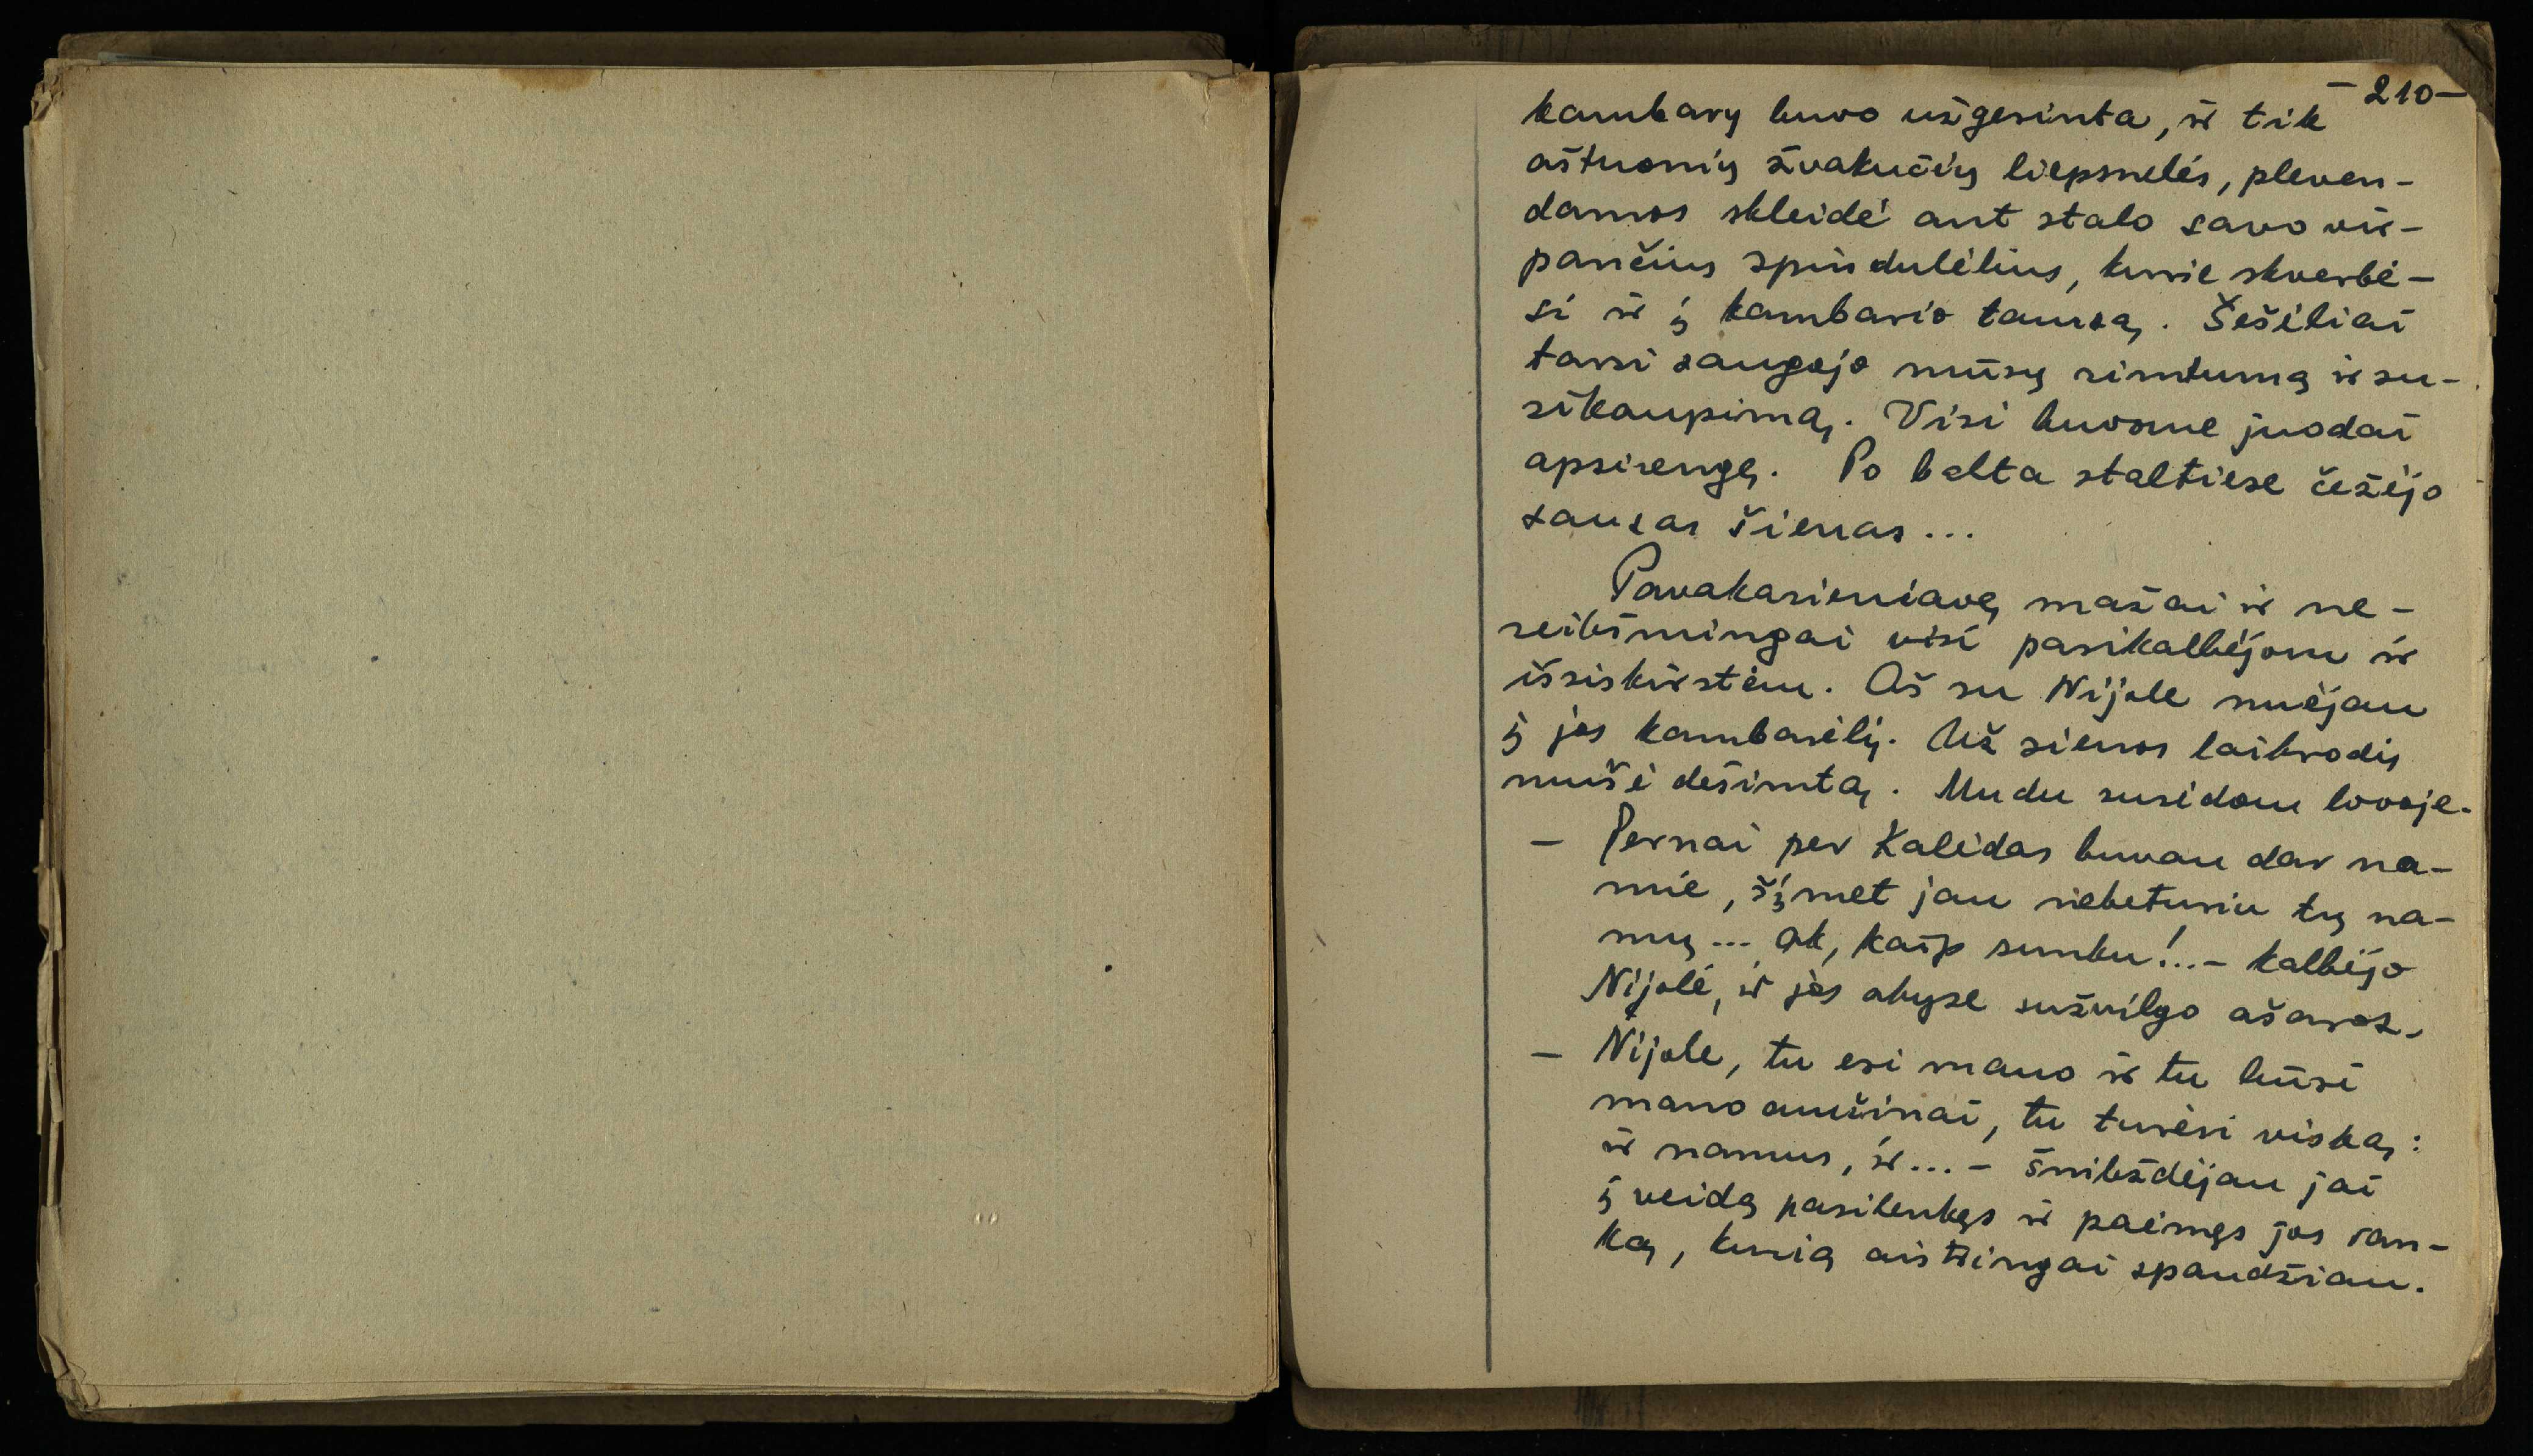 – 210 –
kambary buvo užgesinta, ir tik
aštuonių žvakučių liepsnelės, pleven-
damos skleidė ant stalo savo vir-
pančius spindulėlius, kurie skverbė-
si ir į kambario tamsą. Šešėliai
tarsi saugojo mūsų rimtumą ir su-
sikaupimą. Visi buvome juodai
apsirengę. Po balta staltiese čežėjo
sausas šienas...
Pavakarieniavę mažai ir ne-
reikšmingai visi pasikalbėjom ir
išsiskirstėm. Aš su Nijole nuėjau
į jos kambarėlį. Už sienos laikrodis
mušė dešimtą. Mudu susėdom lovoje.
– Pernai per Kalėdas buvau dar na-
mie, šįmet jau nebeturiu tų na-
mų... Ak, kaip sunku!.. – kalbėjo
Nijolė, ir jos akyse sužvilgo ašaros.
– Nijole, tu esi mano ir tu būsi
mano amžinai, tu turėsi viską:
ir namus, ir... – šnibždėjau jai
į veidą pasilenkęs ir paėmęs jos ran-
ką, kurią aistringai spaudžiau.